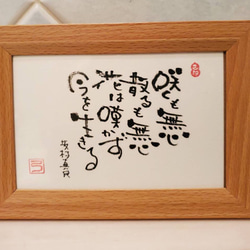 咲くも無心
散るも無心
花は嘆かず
今を生きる
坂村真民